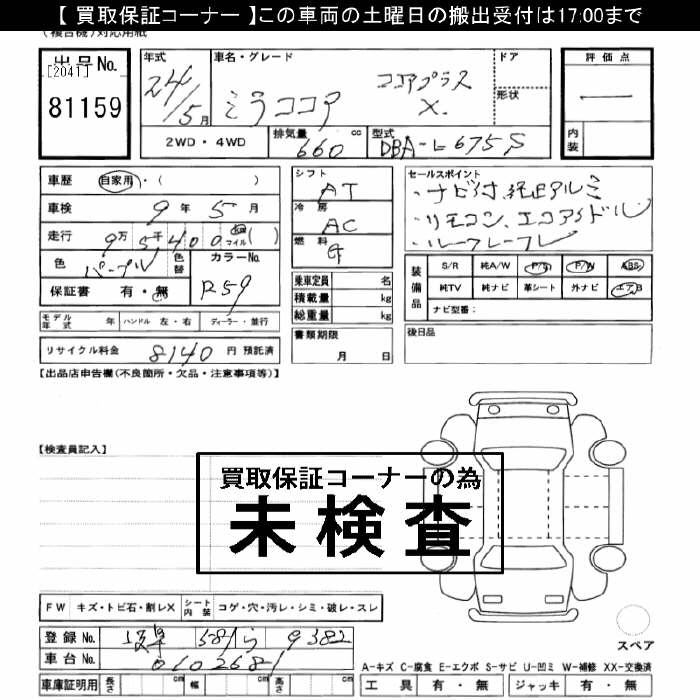 【 買取保証コーナー 】この車両の土曜日の搬出受付は17:00まで
(複合機)対応用紙
出品No.
[2041]
81159
年式
24/5月
車名・グレード
ミラココア
ココアプラス
X.
ドア
形状
評価点
—
内装
2WD・4WD
排気量 660 cc
型式 DBA-L675S
車歴 自家用・( )
車検 9年 5月
走行 9万 5千 400 km マイル ( )
色 パープル 色替
カラーNo.
R59
保証書 有・無
シフト AT
冷房 AC
燃料 G
乗車定員 名
積載量 kg
総重量 kg
書類期限
月 日
セールスポイント
・ナビ付、純正アルミ
・リモコン、エコアイドル
・ルーフレール
装備品
S/R 純A/W P/S P/W ABS
純TV 純ナビ 革シート 外ナビ エアB
ナビ型番:
後日品
モデル年式 年 ハンドル 左・右 ディーラー・並行
リサイクル料金 8140 円 預託済
【出品店申告欄(不良箇所・欠品・注意事項等)】
【検査員記入】
買取保証コーナーの為
未検査
FW キズ・トビ石・割レX シート内装 コゲ・穴・汚レ・シミ・破レ・スレ
登録No. 581 ら 9382
車台No. 0102681
車庫証明用 長さ cm 幅 cm 高さ cm
スペア
A-キズ C-腐食 E-エクボ S-サビ U-凹ミ W-補修 XX-交換済
工具 有・無 ジャッキ 有・無